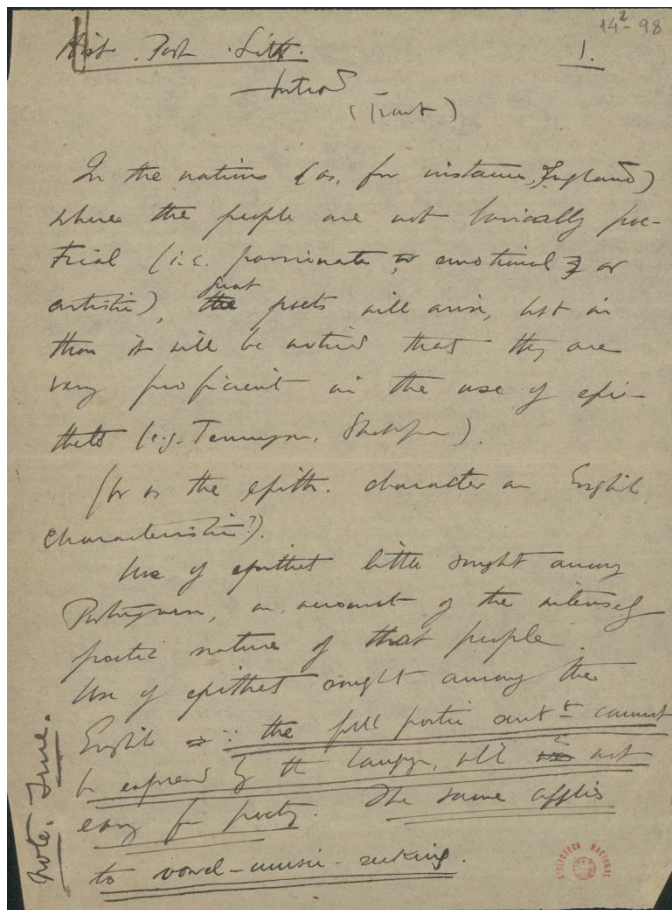 14²-98
Hist. Port. Litt. 1.
Introd
(Traut)
In the nations (as, for instance, England)
where the people are not basically poe-
trical (i.e. passionate, emotional or
artistic), great poets will arise, but in
them it will be noticed that they are
very proficient in the use of epi-
thets (e.g. Tennyson, ).
(Or is the epith. character an English
characteristic?).
Use of epithet little sought among
Portuguese, on account of the intensely
poetic nature of that people
Use of epithet sought among the
English ∵ the full poetic sentt cannot
be expressed by the language, wh is not
easy for poetry. The same applies
to vowel-music-seeking.
note. True.
BIBLIOTECA NACIONAL